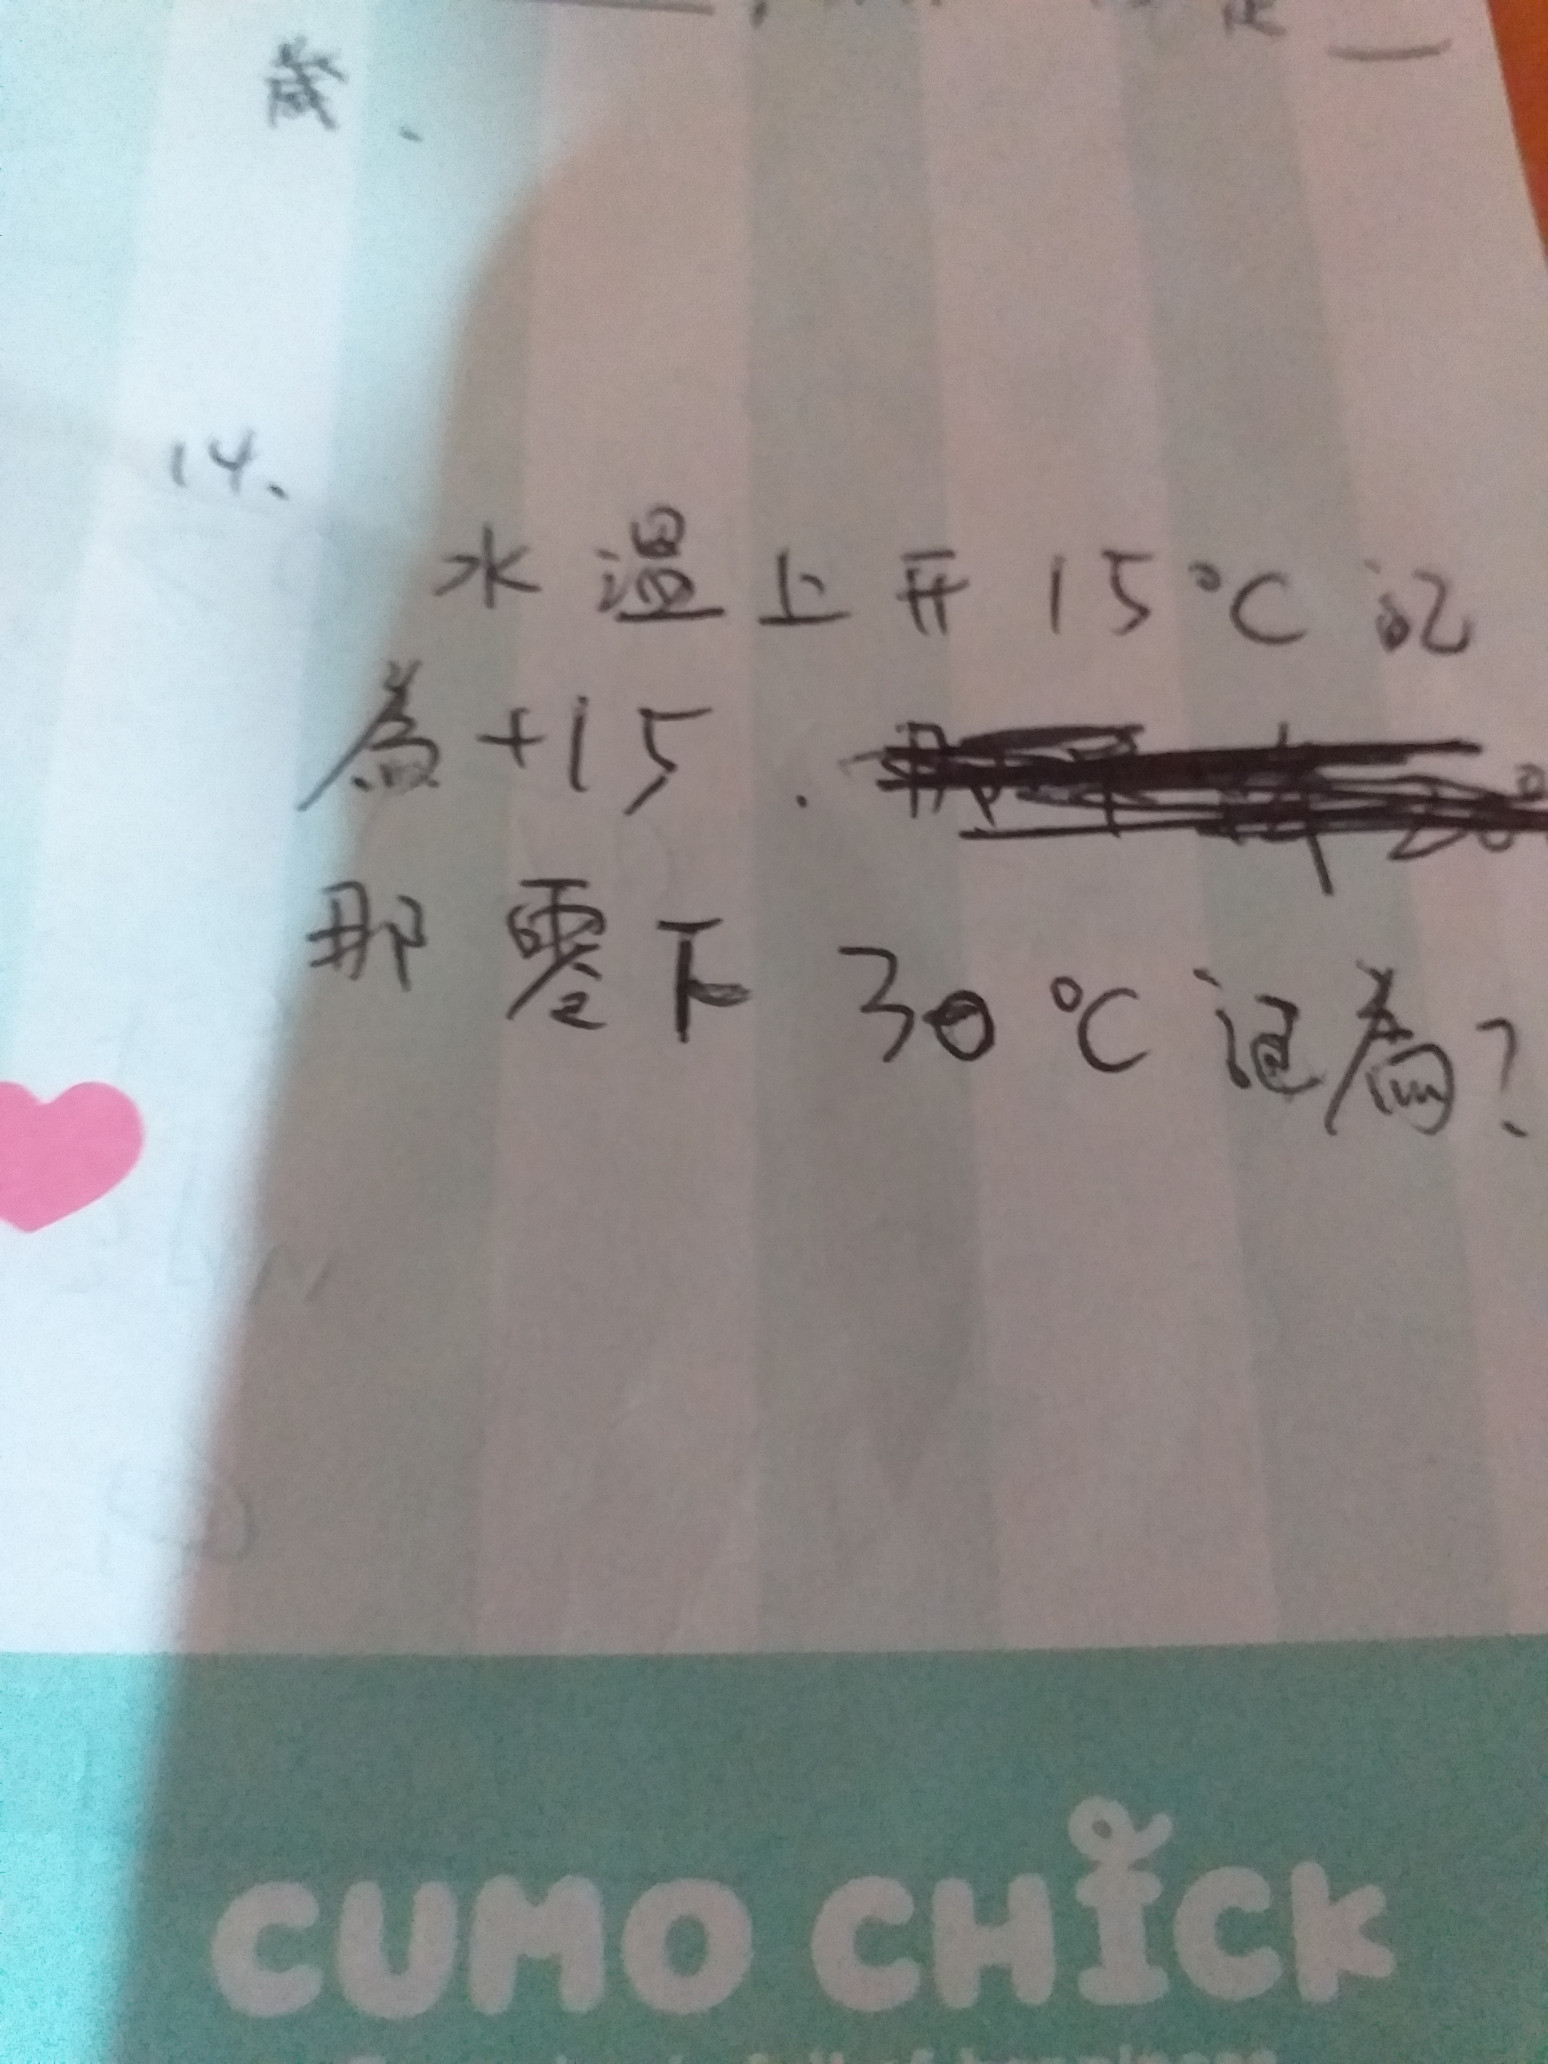 歲.
14.
水温上升15°C記
為+15.
那零下30°C记為?
CUMO CHICK